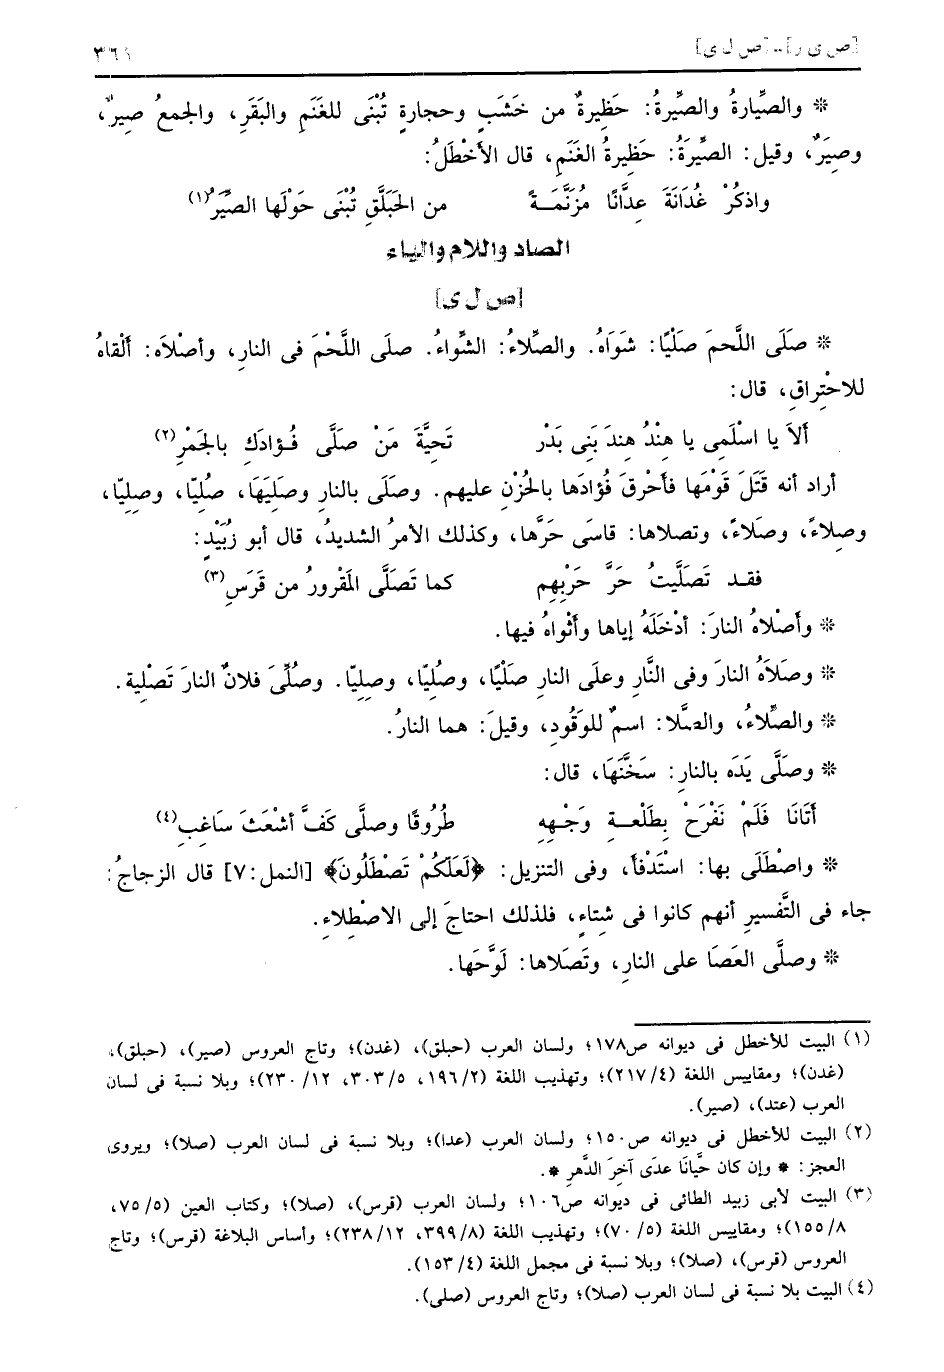 [ص ى ر] .. [ص ل ى] ٣٦١
* والصِّيارةُ والصِّيرةُ: حَظِيرةٌ من خَشَبٍ وحجارةٍ تُبْنَى للغَنَمِ والبَقَرِ، والجمعُ صِيرٌ،
وصِيَرٌ، وقيل: الصِّيرَةُ: حَظِيرةُ الغَنَمِ، قال الأخْطَلُ:
واذكُرْ غُدَانَةَ عِدَّانًا مُزَنَّمَـــةً من الحَبَلَّقِ تُبْنَى حَوْلَها الصِّيَرُ(١)
الصاد واللام والياء
[ص ل ى]
* صَلَى اللَّحمَ صَلْيًا: شَوَاهُ. والصِّلاءُ: الشِّواءُ. صلَى اللحْمَ فى النارِ، وأصْلاَه: ألْقاهُ
للاحْتِراقِ، قال:
ألاَ يا اسْلَمِى يا هِنْدُ هِندَ بَنِى بَدْر تَحِيَّةَ مَنْ صلَّى فُـؤادَكِ بالجَمْرِ(٢)
أراد أنه قَتَلَ قَوْمَها فأحْرقَ فُؤادَها بالحُزْنِ عليهم. وصلَى بالنارِ وصلِيَهَا، صلْيًا، صُلِيّا، وصِلِيّا،
وصِلاءً، وصَلاءً، وتصلاها: قاسَى حَرَّها، وكذلك الأمرُ الشديدُ، قال أبو زُبَيْدٍ:
فقـد تَصَلَّيتُ حَرَّ حَرْبِهِم كما تَصَلَّى المَقْرورُ من قَرَسِ(٣)
* وأَصْلاهُ النارَ: أدْخَلَهُ إياها وأَثْواهُ فيها.
* وصَلاَهُ النارَ وفى النَّارِ وعلَى النارِ صَلْيًا، وصُلِيّا، وصِلِيّا. وصُلِّىَ فلانٌ النارَ تَصْلِية.
* والصِّلاءُ، والصَّلا: اسمٌ للوَقُودِ، وقيلَ: هما النارُ.
* وصَلَّى يَدَه بالنارِ: سَخَّنَهَا، قال:
أتَانَا فَلَمْ نَفْرَحْ بِطَلْعـــةِ وَجْـهِهِ طُرُوقًا وصلَّى كَفَّ أشْعَثَ سَاغِبِ(٤)
* واصْطَلَى بها: اسْتَدْفأ، وفى التنزيل: ﴿لَعَلَكُمْ تَصْطَلُونَ﴾ [النمل:٧] قال الزجاجُ:
جاء فى التَّفسيرِ أنهم كانوا فى شِتاءٍ، فلذلك احتاجَ إلى الاصْطِلاءِ.
* وصلَّى العَصَا على النارِ، وتَصَلاها: لَوَّحَها.
(١) البيت للأخطل فى ديوانه ص١٧٨؛ ولسان العرب (حبلق)، (غدن)؛ وتاج العروس (صير)، (حبلق)،
(غدن)؛ ومقاييس اللغة (٢١٧/٤)؛ وتهذيب اللغة (١٩٦/٢، ٣٠٣/٥، ٢٣٠/١٢)؛ وبلا نسبة فى لسان
العرب (عتد)، (صير).
(٢) البيت للأخطل فى ديوانه ص١٥٠؛ ولسان العرب (عدا)؛ وبلا نسبة فى لسان العرب (صلا)؛ ويروى
العجز: * وإن كان حَيَّانَا عدًى آخِرَ الدَّهرِ *.
(٣) البيت لأبى زبيد الطائى فى ديوانه ص١٠٦؛ ولسان العرب (قرس)، (صلا)؛ وكتاب العين (٧٥/٥،
١٥٥/٨)؛ ومقاييس اللغة (٧٠/٥)؛ وتهذيب اللغة (٣٩٩/٨، ٢٣٨/١٢)؛ وأساس البلاغة (قرس)؛ وتاج
العروس (قرس)، (صلا)؛ وبلا نسبة فى مجمل اللغة (١٥٣/٤).
(٤) البيت بلا نسبة فى لسان العرب (صلا)؛ وتاج العروس (صلى).